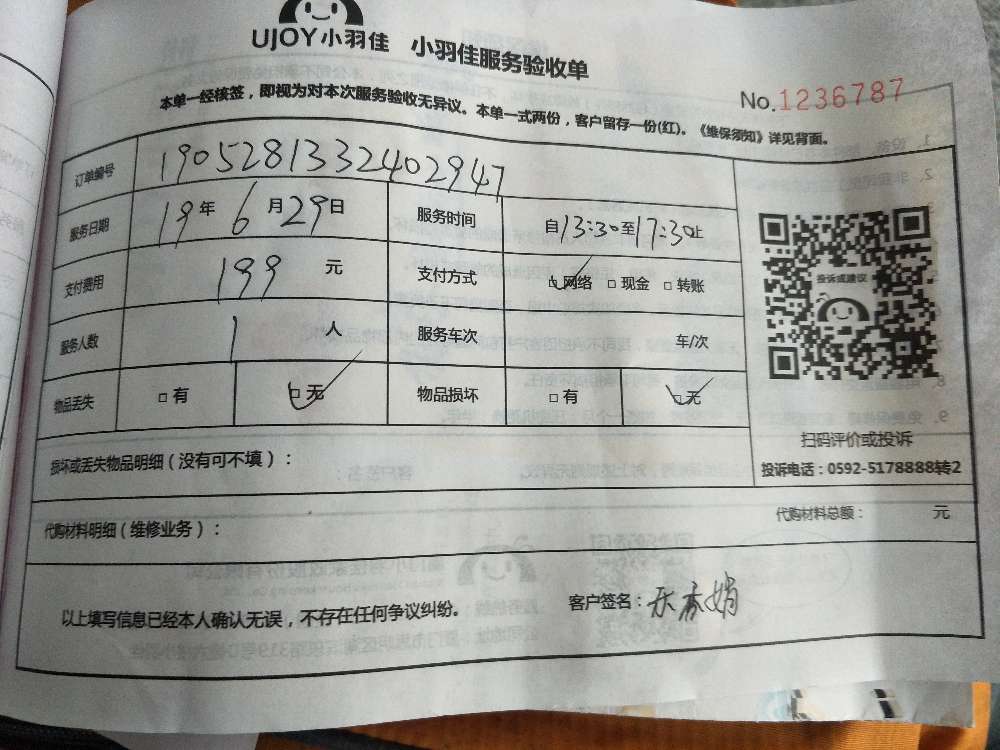 UJOY小羽佳 小羽佳服务验收单
No.1236787
本单一经核签，即视为对本次服务验收无异议。本单一式两份，客户留存一份(红)。《维保须知》详见背面。
订单编号 1905281332402947
服务日期 19年6月29日 服务时间 自13:30至17:30止
支付费用 199元 支付方式 □网络 □现金 □转账
服务人数 1人 服务车次 车/次
物品丢失 □有 □无 物品损坏 □有 □无
投诉或建议
扫码评价或投诉
投诉电话：0592-5178888转2
损坏或丢失物品明细（没有可不填）：
代购材料明细（维修业务）：
代购材料总额： 元
以上填写信息已经本人确认无误，不存在任何争议纠纷。
客户签名：